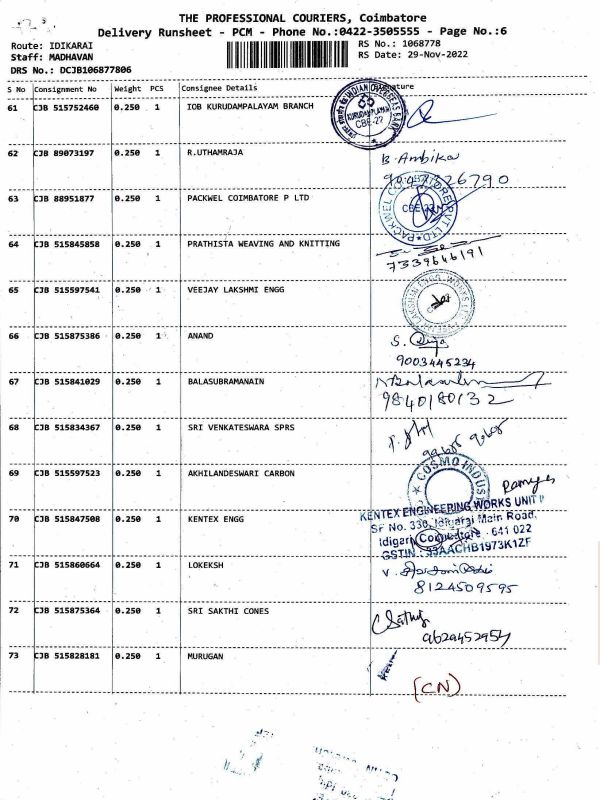 THE PROFESSIONAL COURIERS, Coimbatore
Delivery Runsheet - PCM - Phone No.:0422-3505555 - Page No.:6
Route: IDIKARAI
RS No.: 1068778
Staff: MADHAVAN
RS Date: 29-Nov-2022
DRS No.: DCJB106877806
S No Consignment No Weight PCS Consignee Details Signature
61 CJB 515752460 0.250 1 IOB KURUDAMPALAYAM BRANCH
KURUDAMPALAYAM
CBE-27
62 CJB 89073197 0.250 1 R.UTHAMRAJA
B. Ambika
63 CJB 88951877 0.250 1 PACKWEL COIMBATORE P LTD
PACKWEL COIMBATORE PVT LTD
64 CJB 515845858 0.250 1 PRATHISTA WEAVING AND KNITTING
7339646191
65 CJB 515597541 0.250 1 VEEJAY LAKSHMI ENGG
66 CJB 515875386 0.250 1 ANAND
9003445234
67 CJB 515841029 0.250 1 BALASUBRAMANAIN
9840180132
68 CJB 515834367 0.250 1 SRI VENKATESWARA SPRS
69 CJB 515597523 0.250 1 AKHILANDESWARI CARBON
COSMO INDUS
70 CJB 515847508 0.250 1 KENTEX ENGG
KENTEX ENGINEERING WORKS UNIT II
SF No. 330, Idigarai Main Road,
Idigarai, Coimbatore - 641 022
GSTIN : 33AACHB1973K1ZF
71 CJB 515860664 0.250 1 LOKEKSH
8124509595
72 CJB 515875364 0.250 1 SRI SAKTHI CONES
73 CJB 515828181 0.250 1 MURUGAN
(CN)